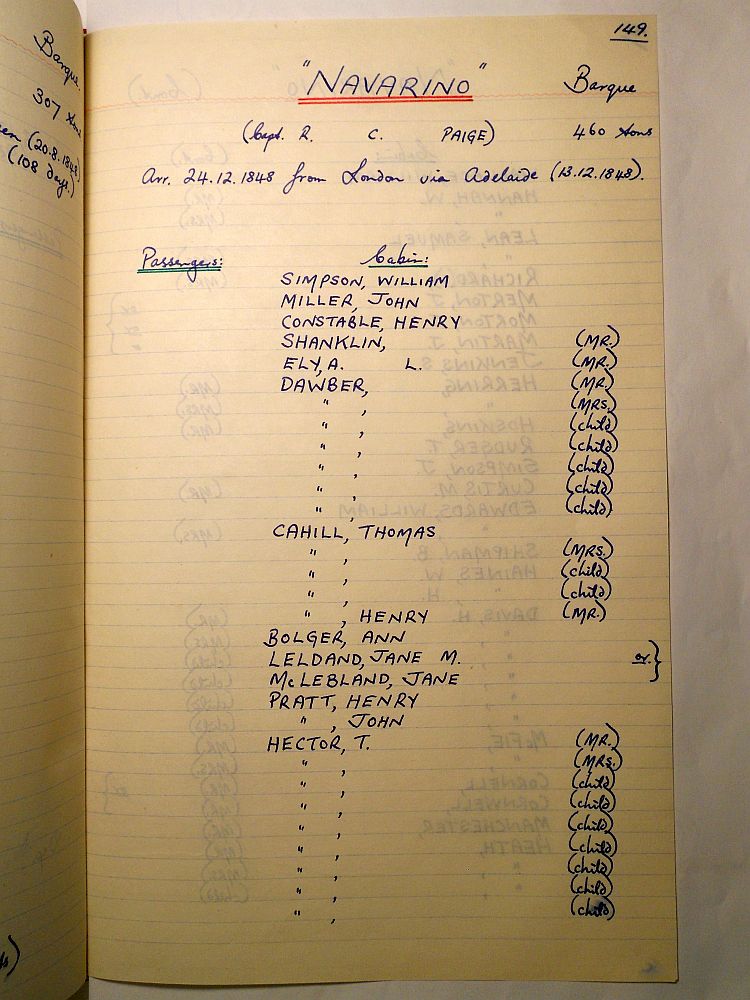 Barque.
307 tons
(20.8.1848)
(108 days.)
149.
"NAVARINO" Barque
(Capt. R. C. PAIGE) 460 tons
Arr. 24.12.1848 from London via Adelaide (13.12.1848).
Passengers: Cabin:
SIMPSON, WILLIAM
MILLER, JOHN
CONSTABLE, HENRY
SHANKLIN, (MR.)
ELY, A. L. (MR.)
DAWBER, (MR.)
" , (MRS.)
" , (child)
" , (child)
" , (child)
" , (child)
" , (child)
CAHILL, THOMAS
" , (MRS.)
" , (child)
" , (child)
" , HENRY (MR.)
BOLGER, ANN
LELDAND, JANE M. or. }
McLEBLAND, JANE
PRATT, HENRY
" , JOHN
HECTOR, T. (MR.)
" , (MRS.)
" , (child)
" , (child)
" , (child)
" , (child)
" , (child)
" , (child)
" , (child)